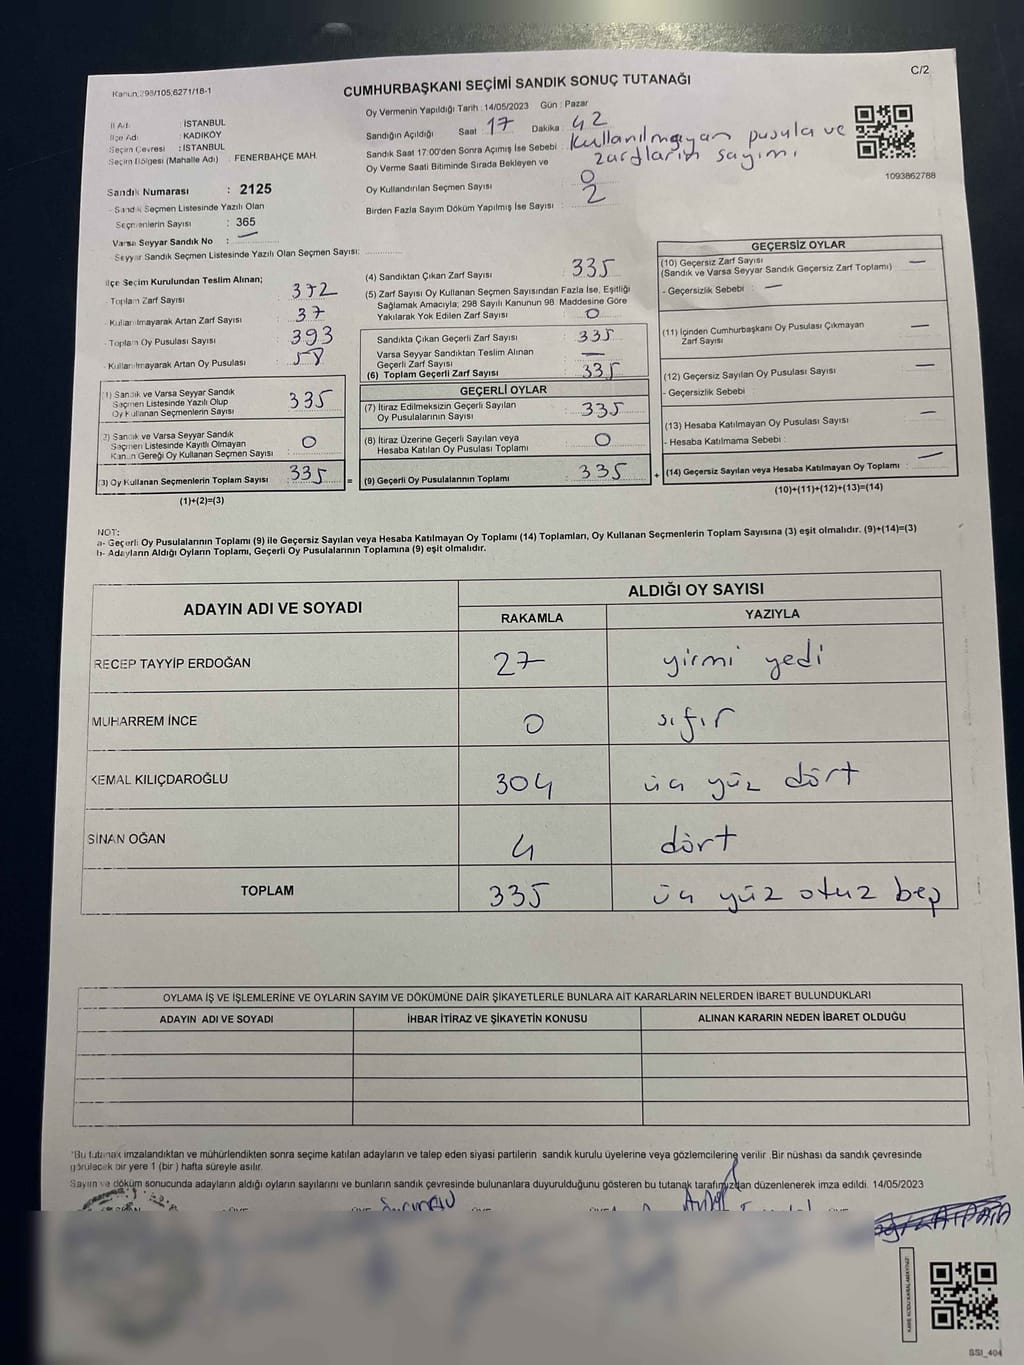 C/2
Kanun:298/105,6271/18-1
CUMHURBAŞKANI SEÇİMİ SANDIK SONUÇ TUTANAĞI
İl Adı : İSTANBUL
İlçe Adı : KADIKÖY
Seçim Çevresi : İSTANBUL
Seçim Bölgesi (Mahalle Adı) : FENERBAHÇE MAH.
Oy Vermenin Yapıldığı Tarih : 14/05/2023 Gün : Pazar
Sandığın Açıldığı Saat : 17 Dakika : 42
Sandık Saat 17:00'den Sonra Açımış İse Sebebi : kullanılmayan pusula ve
zarfların sayımı
Oy Verme Saati Bitiminde Sırada Bekleyen ve
Oy Kullandırılan Seçmen Sayısı : 0
Birden Fazla Sayım Döküm Yapılmış İse Sayısı : 2
1093862788
Sandık Numarası : 2125
- Sandık Seçmen Listesinde Yazılı Olan
Seçmenlerin Sayısı : 365
Varsa Seyyar Sandık No : —
- Seyyar Sandık Seçmen Listesinde Yazılı Olan Seçmen Sayısı:
İlçe Seçim Kurulundan Teslim Alınan;
- Toplam Zarf Sayısı : 372
- Kullanılmayarak Artan Zarf Sayısı : 37
- Toplam Oy Pusulası Sayısı : 393
- Kullanılmayarak Artan Oy Pusulası : 58
(1) Sandık ve Varsa Seyyar Sandık
Seçmen Listesinde Yazılı Olup
Oy Kullanan Seçmenlerin Sayısı : 335
(2) Sandık ve Varsa Seyyar Sandık
Seçmen Listesinde Kayıtlı Olmayan
Kanun Gereği Oy Kullanan Seçmen Sayısı : 0
(3) Oy Kullanan Seçmenlerin Toplam Sayısı : 335
(1)+(2)=(3)
(4) Sandıktan Çıkan Zarf Sayısı : 335
(5) Zarf Sayısı Oy Kullanan Seçmen Sayısından Fazla İse, Eşitliği
Sağlamak Amacıyla; 298 Sayılı Kanunun 98. Maddesine Göre
Yakılarak Yok Edilen Zarf Sayısı : 0
Sandıkta Çıkan Geçerli Zarf Sayısı : 335
Varsa Seyyar Sandıktan Teslim Alınan
Geçerli Zarf Sayısı : —
(6) Toplam Geçerli Zarf Sayısı : 335
GEÇERLİ OYLAR
(7) İtiraz Edilmeksizin Geçerli Sayılan
Oy Pusulalarının Sayısı : 335
(8) İtiraz Üzerine Geçerli Sayılan veya
Hesaba Katılan Oy Pusulası Toplamı : 0
= (9) Geçerli Oy Pusulalarının Toplamı : 335
GEÇERSİZ OYLAR
(10) Geçersiz Zarf Sayısı : —
(Sandık ve Varsa Seyyar Sandık Geçersiz Zarf Toplamı)
- Geçersizlik Sebebi : —
(11) İçinden Cumhurbaşkanı Oy Pusulası Çıkmayan : —
Zarf Sayısı
(12) Geçersiz Sayılan Oy Pusulası Sayısı : —
- Geçersizlik Sebebi :
(13) Hesaba Katılmayan Oy Pusulası Sayısı : —
- Hesaba Katılmama Sebebi :
+ (14) Geçersiz Sayılan veya Hesaba Katılmayan Oy Toplamı : —
(10)+(11)+(12)+(13)=(14)
NOT:
a- Geçerli Oy Pusulalarının Toplamı (9) ile Geçersiz Sayılan veya Hesaba Katılmayan Oy Toplamı (14) Toplamları, Oy Kullanan Seçmenlerin Toplam Sayısına (3) eşit olmalıdır. (9)+(14)=(3)
b- Adayların Aldığı Oyların Toplamı, Geçerli Oy Pusulalarının Toplamına (9) eşit olmalıdır.
ADAYIN ADI VE SOYADI ALDIĞI OY SAYISI
RAKAMLA YAZIYLA
RECEP TAYYİP ERDOĞAN 27 yirmi yedi
MUHARREM İNCE 0 sıfır
KEMAL KILIÇDAROĞLU 304 üç yüz dört
SİNAN OĞAN 4 dört
TOPLAM 335 üç yüz otuz beş
OYLAMA İŞ VE İŞLEMLERİNE VE OYLARIN SAYIM VE DÖKÜMÜNE DAİR ŞİKAYETLERLE BUNLARA AİT KARARLARIN NELERDEN İBARET BULUNDUKLARI
ADAYIN ADI VE SOYADI İHBAR İTİRAZ VE ŞİKAYETİN KONUSU ALINAN KARARIN NEDEN İBARET OLDUĞU
*Bu tutanak imzalandıktan ve mühürlendikten sonra seçime katılan adayların ve talep eden siyasi partilerin sandık kurulu üyelerine veya gözlemcilerine verilir. Bir nüshası da sandık çevresinde
görülecek bir yere 1 (bir) hafta süreyle asılır.
Sayım ve döküm sonucunda adayların aldığı oyların sayılarını ve bunların sandık çevresinde bulunanlara duyurulduğunu gösteren bu tutanak tarafımızdan düzenlenerek imza edildi. 14/05/2023
SSI_404